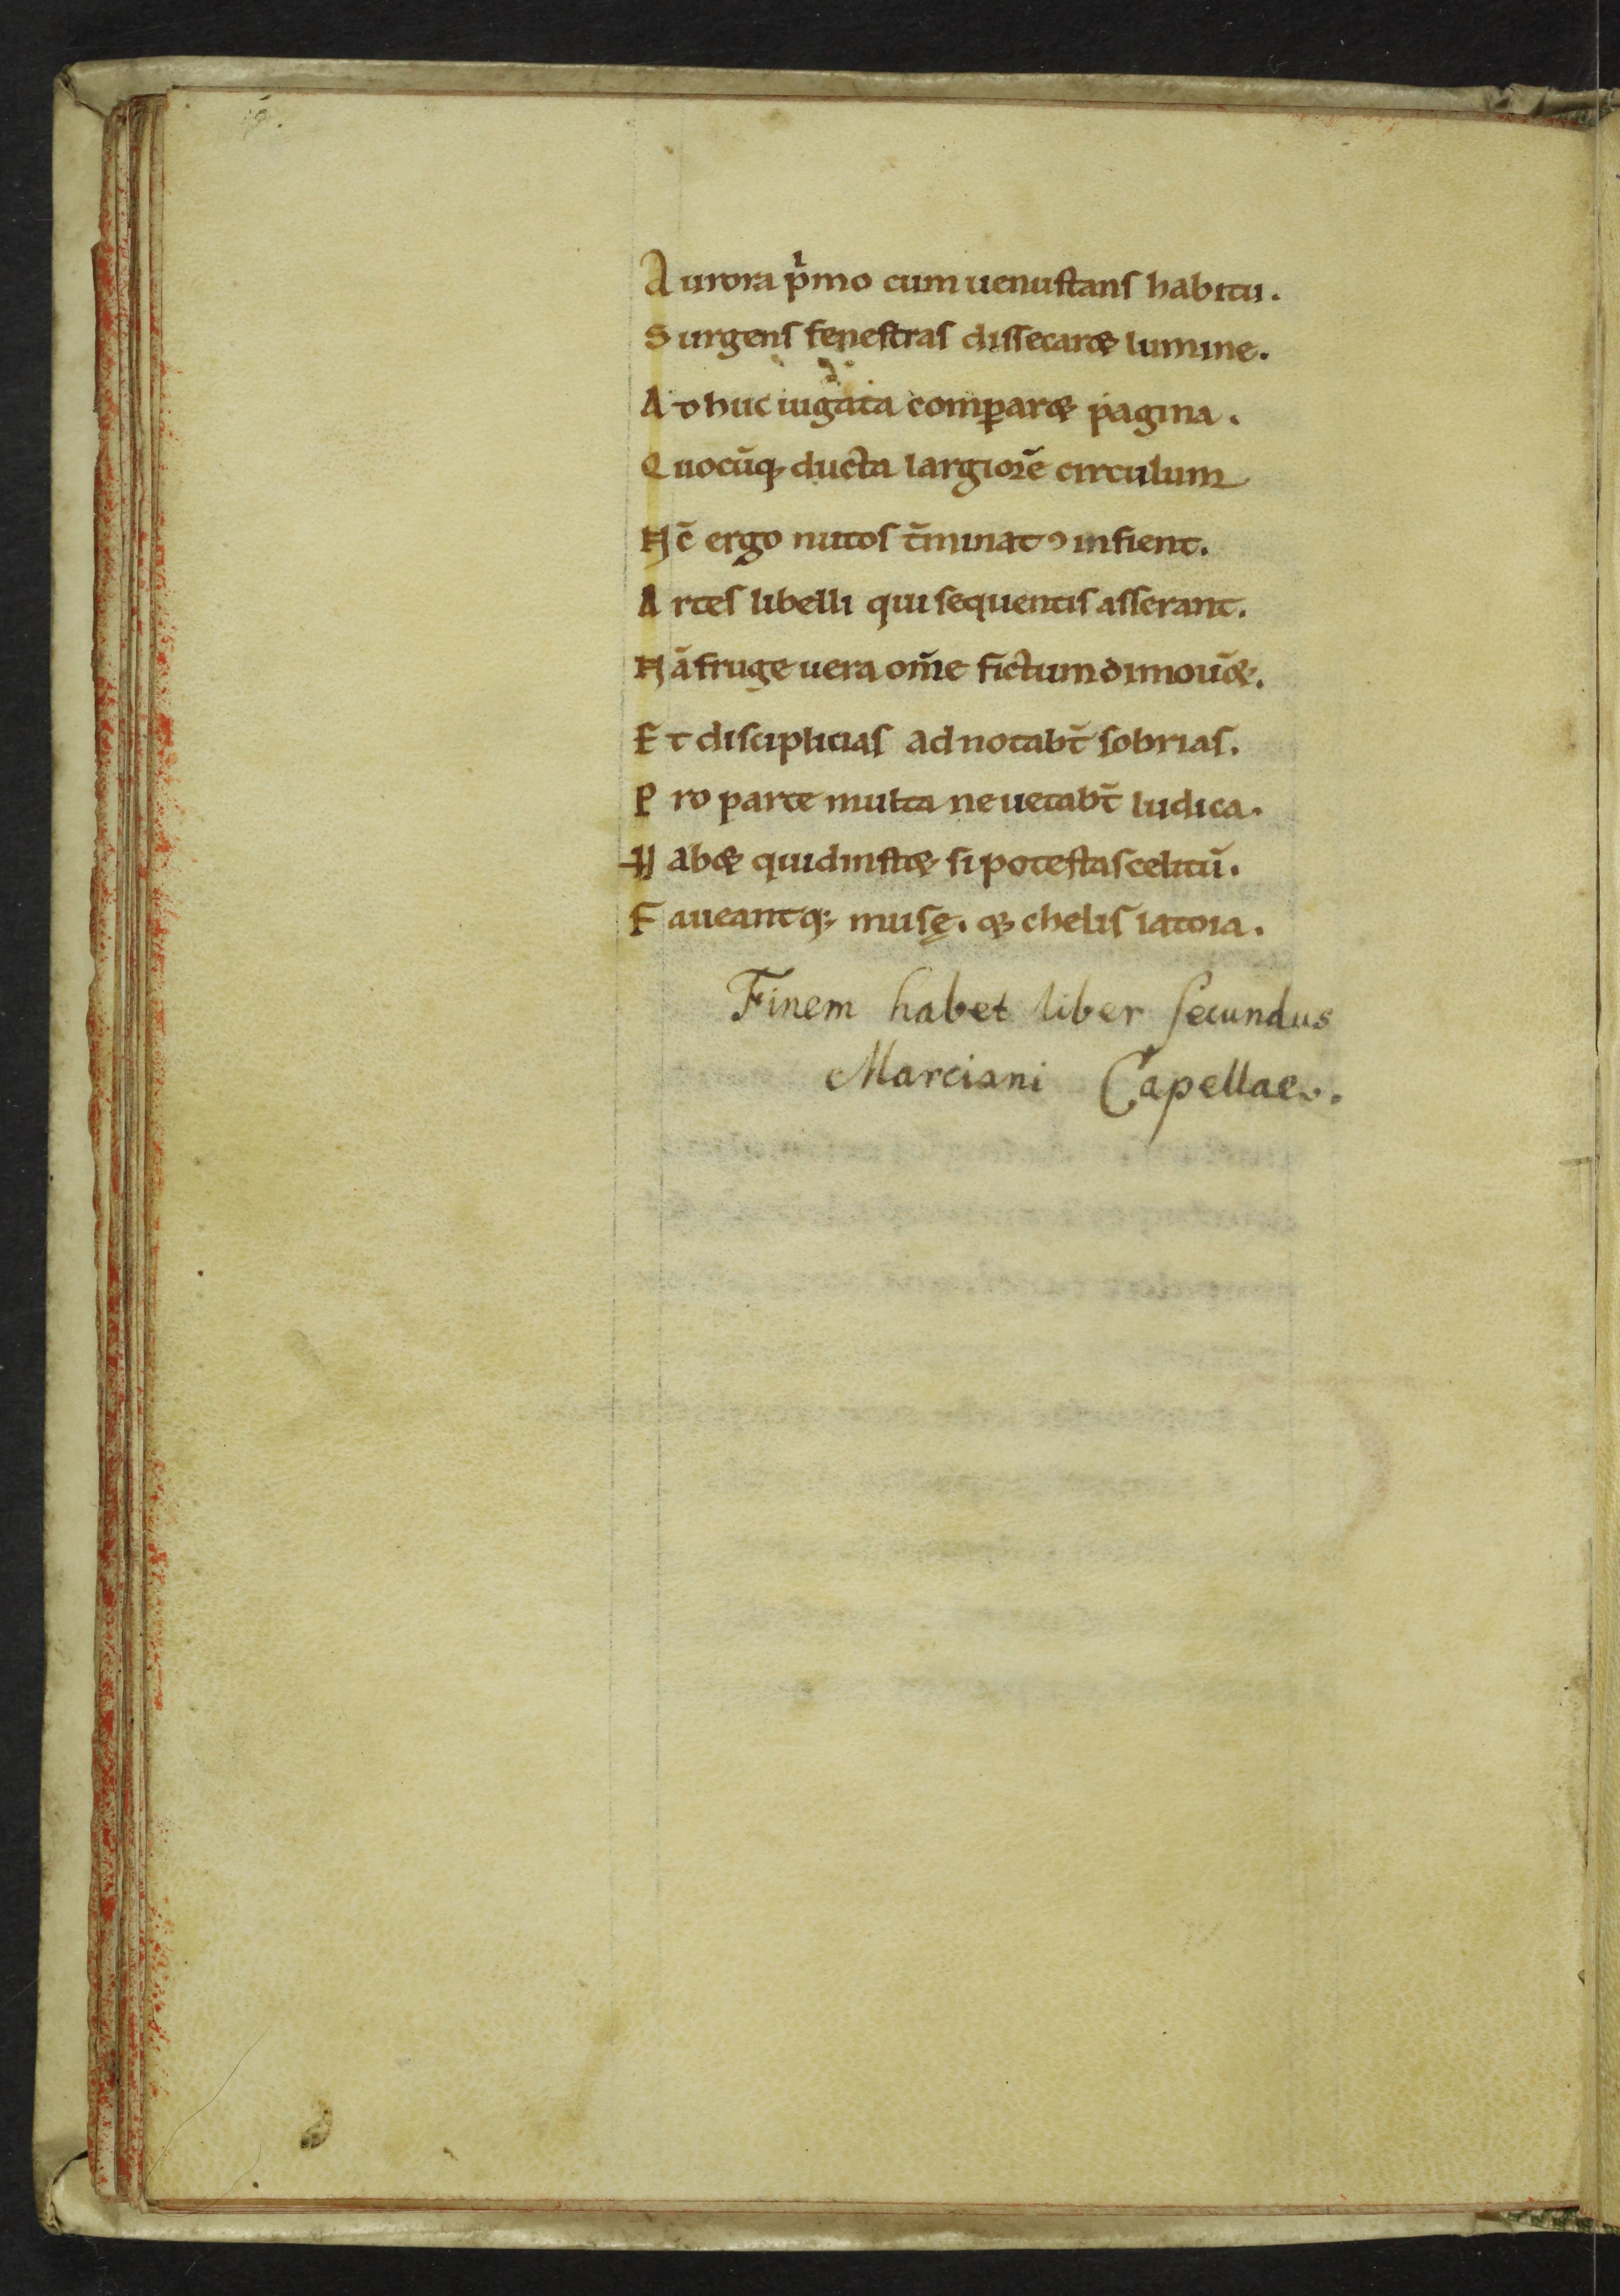 Aurora pͥmo cum uenustans habitu.
Surgens fenestras dissecar& lumine.
Adhuc iugata comꝑar& pagina.
Quocūq; ducta largiorē circulum
Nc̄ ergo mitos t̄minatꝰ infient.
Artes libelli qui sequentis asserant.
Nā fruge uera om̄e fictum dimou&.
Et disciplicias adnotabt̄ sobrias.
Pro parte multa ne uetabt̄ ludica.
Hab& quid inst& si potestas celitū.
Faueantq; musę. & chelis latoia.
Finem habet liber secundus
Marciani Capellae.